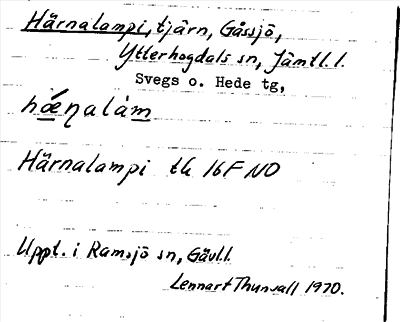 Härnalampi, tjärn, Gåssjö,
Ytterhogdals sn, Jämtl. l.
Svegs o. Hede tg,
hǽn̥alam
Härnalampi tk 16F NO
Uppt. i Ramsjö sn, Gävl.l.
Lennart Thunvall 1970.